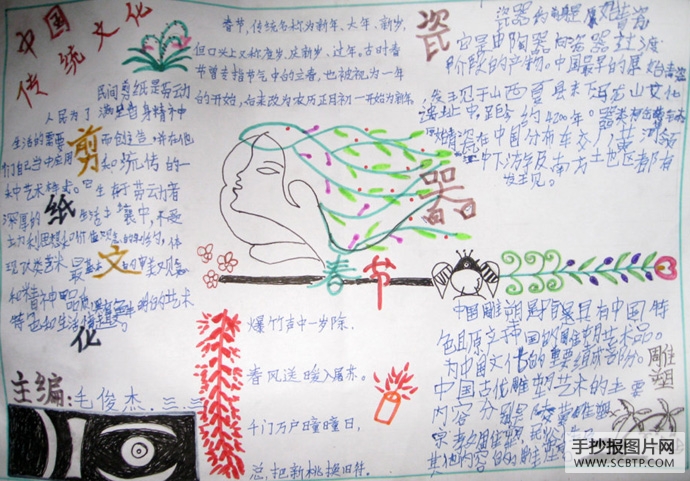 中国
传统文化
春节，传统名称为新年、大年、新岁，
但口头上又称度岁、庆新岁、过年。古时春
节曾专指节气中的立春，也被视为一年
的开始，后来改为农历正月初一开始为新年。
民间剪纸是劳动
人民为了满足自身精神
生活的需要而创造，并在他
们自己当中应用和流传的一
种艺术样式。它生
深厚的生活土壤中，不受
体
现人类艺术最基本的审美观念
和精神品质，
的艺术
特色和生活情趣。
剪
纸
文
化
瓷
器
瓷器的前身是原始青瓷
它是由陶器向瓷器过渡
阶段的产物。中国最早的原始青瓷
发现于山西夏县东下冯龙山文化
遗址中，距今约4200年。器类有
中下游以及南方土地区都有
发现。
春节
爆竹声中一岁除，
春风送暖入屠苏。
千门万户曈曈日，
总把新桃换旧符。
中国雕塑
特
色且
中国的雕塑艺术品。
为中国文化的重要组成部分。
中国古代雕塑艺术的主要
内容分别是陵墓雕塑、
宗教雕塑、民俗
其他内容的雕塑
雕
塑
主编：毛俊杰
手抄报图片网
WWW.SCBTP.COM